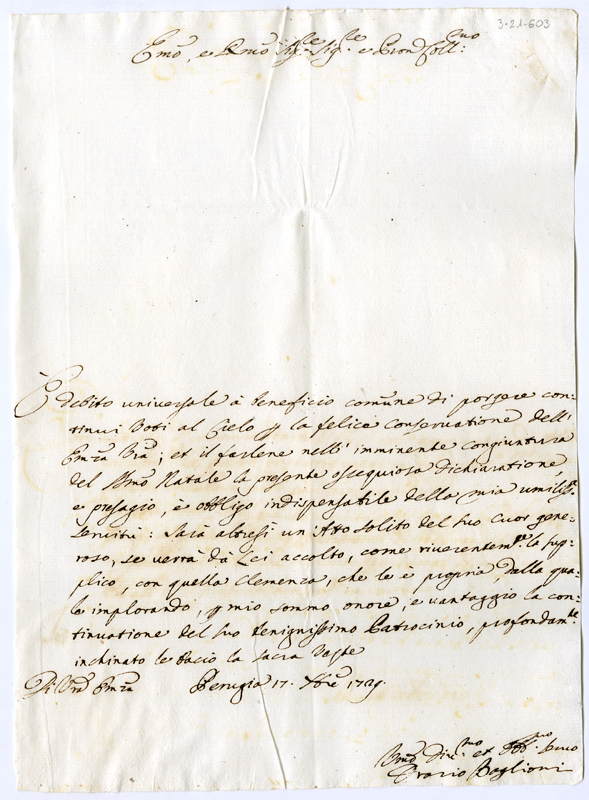 3-21-603
Emo, e Rmo Sigre Sigre e Pron Collmo
È debito universale à beneficio comune di porgere con-
tinui Voti al Cielo p la felice conservatione dell'
Emza Vra; et il farlene nell' imminente congiuntura
del Smo Natale la presente ossequiosa dichiaratione,
e presagio, è obbligo indispensabile della mia umilissa
servitù: Sarà altresì un' Atto solito del suo Cuor gene-
roso, se verrà dà Lei accolto, come riverentemte la sup-
plico, con quella Clemenza, che le è propria, dalla qua-
le implorando, p mio sommo onore, e vantaggio la con-
tinuatione del suo benignissimo Patrocinio, profondamte
inchinato le bacio la sacra Veste
Di Vra Emza Perugia 17. Xbre 1729.
Umo Divmo et Obbmo servo
Orazio Baglioni